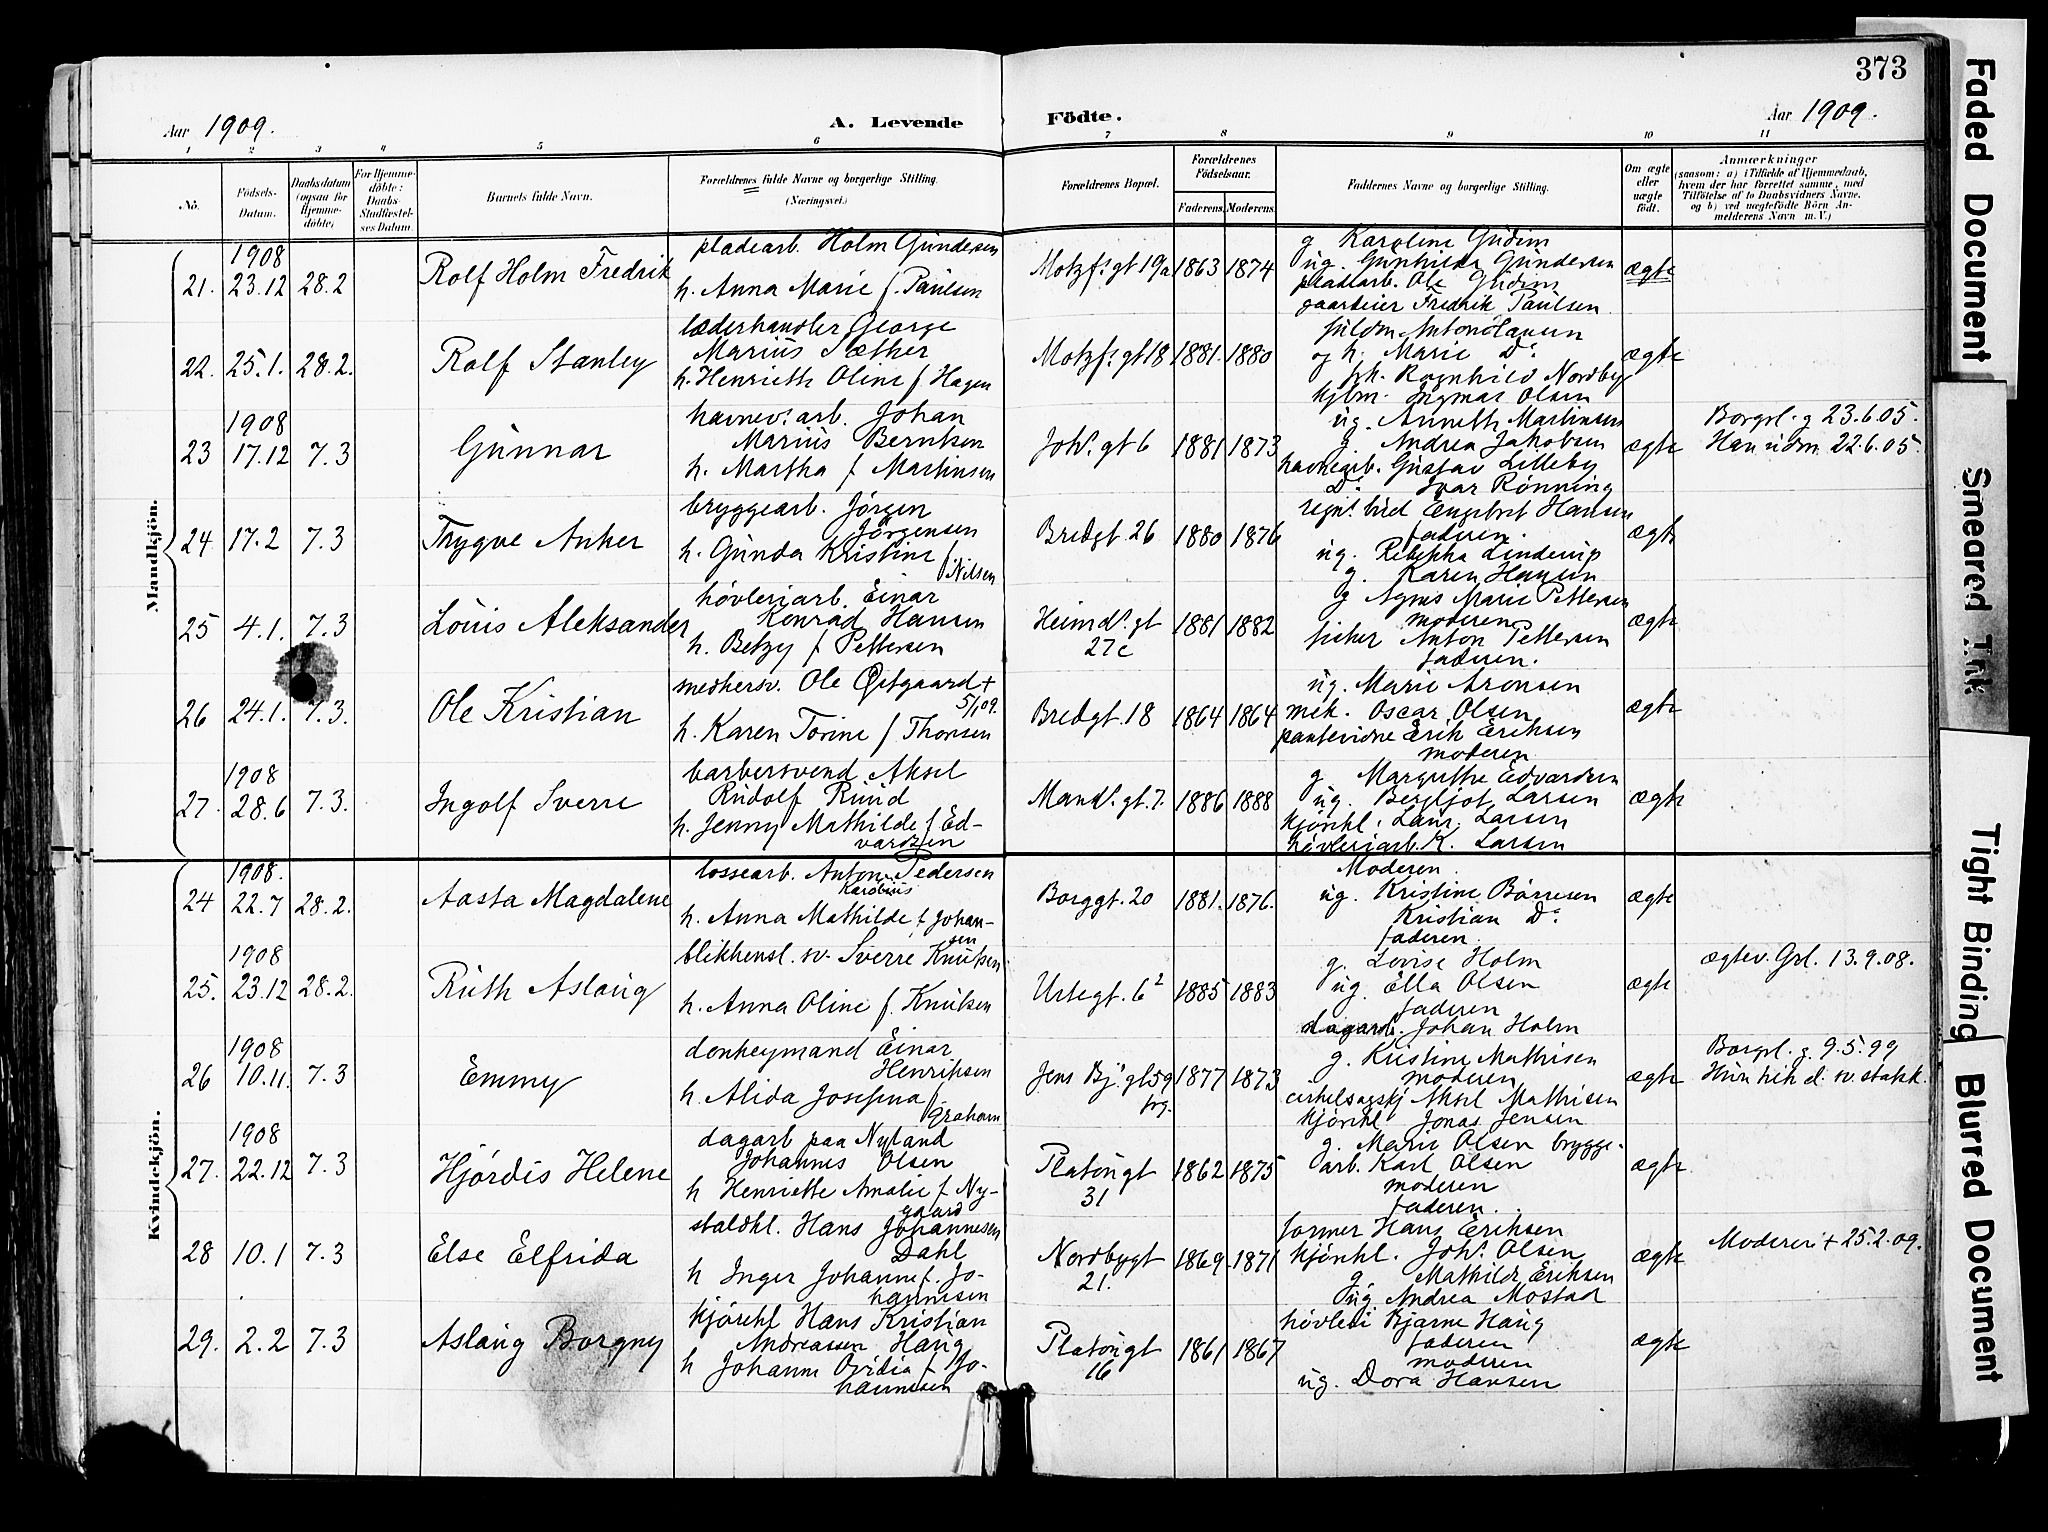 373
Aar 1909.
A. Levende Födte.
Aar 1909.
1 2 3 4 5 6 7 8 9 10 11
No.
Födsels-Datum.
Daabsdatum (ogsaa for Hjemme-döbte)
For Hjemme-döbte: Daabs-Stadfæstel-ses Datum.
Barnets fulde Navn.
Forældrenes fulde Navne og borgerlige Stilling. (Næringsvei.)
Forældrenes Bopæl.
Forældrenes Födselsaar.
Faderens. Moderens.
Faddernes Navne og borgerlige Stilling.
Om ægte eller uægte födt.
Anmærkninger
(saasom: a) i Tilfælde af Hjemmedaab, hvem der har forrettet samme, med Tilföielse af to Daabsvidners Navne. og b) ved uægtefödte Börn An-melderens Navn m. V.)
Mandkjön.
21. 1908 23.12 28.2 Rolf Holm Fredrik
pladearb. Holm Gundersen
h. Anna Marie f. Paulsen
Motzf.s gt 19a 1863 1874
g. Karoline Gudim
ug. Gunhilda Gundersen
pladearb. Ole Gudim
gaardeier Fredrik Paulsen
ægte
22. 25.1. 28.2. Rolf Stanley
læderhandler George
Marius Sæther
h. Henriette Oline f. Hagen
Motzf.s gt 18 1881. 1880
og h. Marie Do
Ragnhild Nordby
Ingmar Olsen
ægte
23 1908 17.12 7.3 Gunnar
havnev. arb. Johan
Marius Berntsen
h. Martha f. Martinsen
Joh.s gt 6 1881 1873
ug. Annette Martinsen
g. Andrea Jakobsen
havnearb. Gustav Lilleby
Do Ivar Rönning
ægte
Borgrl. g 23.6.05.
Han udm. 22.6.05.
24 17.2 7.3 Trygve Anker
bryggearb. Jörgen
Jörgensen
h. Gunda Kristine f.
Nilsen
Bredgt. 26 1880 1876
Engebret Hansen
faderen.
ug. Rebekka Linderup
g. Karen Hansen
ægte
25 4.1. 7.3 Louis Aleksander
høvleriarb. Einar
Konrad Hansen
h. Betzy f. Pettersen
Heimd.s gt
27c
1881 1882
g Agnes Marie Pettersen
moderen
fisker Anton Pettersen
faderen.
ægte
26 24.1. 7.3. Ole Kristian
smedsersv. Ole Østgaard +
5/1 09.
h. Karen Torine f. Thorsen
Bredgt. 18 1864 1864
ug. Marie Aronsen
mek. Oscar Olsen
pantevidne Erik Eriksen
moderen
ægte
27. 1908 28.6 7.3. Ingolf Sverre
barbersvend Aksel
Rudolf Ruud
h. Jenny Mathilde f. Ed-
vardsen
Mand.s gt. 7. 1886 1888
g. Margrethe Edvardsen
ug. Bergljot Larsen
kjørekl. Laur. Larsen
høvleriarb. K. Larsen
ægte
Kvindekjön.
24 1908. 22.7 28.2. Aasta Magdalene
lossearb. Anton Pedersen
Karolius
h. Anna Mathilde f. Johan-
sen
Borggt. 20 1881. 1876.
Moderen.
ug. Kristine Børresen
Kristian Do
faderen.
ægte
25. 1908 23.12 28.2. Ruth Aslaug
blikkensl. sv. Sverre Knutsen
h. Anna Oline f. Knutsen
Urtegt. 6 2 1885 1883
g. Lovise Holm
ug. Ella Olsen
faderen
dagarb. Johan Holm
ægte
ægtev. Grl. 13.9.08.
26 1908 10.11. 7.3 Emmy
donkeymand Einar
Henriksen
h. Alida Josefina f.
Graham
Jens Bj.s gt 59
1877 1873
g. Kristine Mathisen
moderen
cirkelsagskj Aksel Mathisen
kjørekl Jonas Jensen
ægte
Borgrl. g. 9.5.99
Hun hik d. sv. statsk.
27. 1908 22.12 7.3 Hjördis Helene
dagarb paa Nyland
Johannes Olsen
h Henriette Amalie f. Ny-
gaard
Platougt
31
1862 1875
g. Marie Olsen brygge-
arb. Karl Olsen
moderen
faderen.
ægte
28 10.1 7.3 Else Elfrida
staldkl. Hans Johannesen
Dahl
h Inger Johanne f. Jo-
hannesen
Nordbygt
21.
1869. 1871
former Hans Eriksen
kjørekl. Joh.s Olsen
g. Mathilde Eriksen
ug. Andrea Mostad
ægte
Moderen + 25.2.09.
29. 2.2 7.3 Aslaug Borgny
kjörekl Hans Kristian
Andreassen Haug
h Johanne Ovidia f. Jo-
hannesen
Platougt
16
1861 1867
høvleri Bjarne Haug
faderen
moderen
ug. Dora Hansen
ægte
Faded Document
Smeared Ink
Tight Binding
Blurred Document